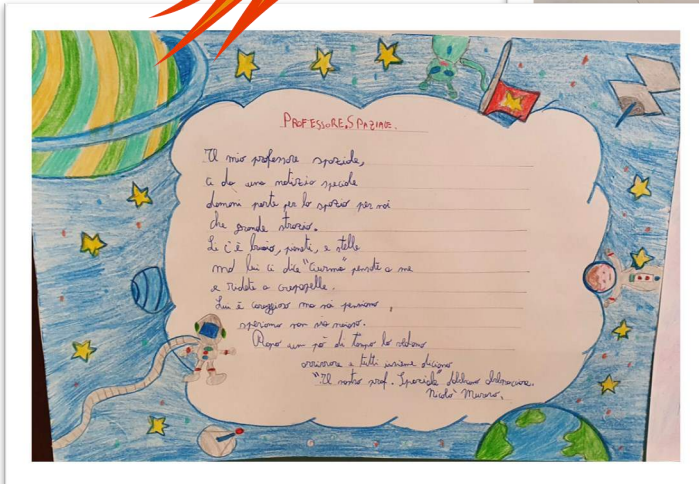 PROFESSORE SPAZIALE.
Il mio professore spaziale,
ci da una notizia speciale
domani parte per lo spazio per noi
che grande strazio.
Li c'è buio, pianeti, e stelle
ma lui ci dice "Ciurma" pensate a me
e ridete a crepapelle.
Lui è coraggioso ma noi pensiamo,
speriamo non sia noioso.
Dopo un pò di tempo lo vediamo
arrivare e tutti insieme diciamo
"Il nostro prof. Spaziale dobbiamo
Nicolò Muraro.